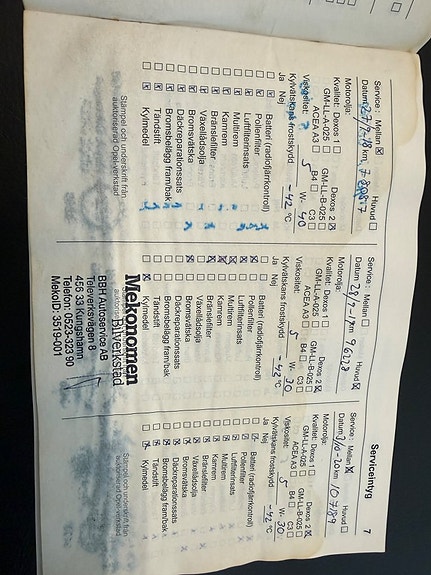 Serviceintyg 7
Service: Mellan ☒ Huvud ☐
Motorolja:
Kvalitet: Dexos 1 ☐ Dexos 2 ☒
GM-LL-A-025 ☐ GM-LL-B-025 ☐
ACEA A3 ☐ B4 ☐ C3 ☐
Viskositet: 5 W- 40
Kylvätskans frostskydd -42 °C
Ja Nej
Batteri (radiofjärrkontroll)
Pollenfilter
Luftfilterinsats
Multirem
Kamrem
Bränslefilter
Växellådsolja
Bromsvätska
Däckreparationssats
Bromsbelägg fram/bak
Tändstift
Kylmedel
Stämpel och underskrift från
auktoriserad Opel-verkstad
Service: Mellan ☐ Huvud ☒
Datum 28/2-19 km 96323
Motorolja:
Kvalitet: Dexos 1 ☐ Dexos 2 ☒
GM-LL-A-025 ☐ GM-LL-B-025 ☐
ACEA A3 ☐ B4 ☐ C3 ☐
Viskositet: 5 W- 30
Kylvätskans frostskydd -42 °C
Ja Nej
Batteri (radiofjärrkontroll)
Pollenfilter
Luftfilterinsats
Multirem
Kamrem
Bränslefilter
Växellådsolja
Bromsvätska
Däckreparationssats
Bromsbelägg fram/bak
Tändstift
Kylmedel
Mekonomen
Bilverkstad
BBH Autoservice AB
Televerksvägen 8
456 33 Kungshamn
Telefon: 0523-323 90
MekoID: 3519-001
Service: Mellan ☒ Huvud ☐
Motorolja:
Kvalitet: Dexos 1 ☐ Dexos 2 ☒
GM-LL-A-025 ☐ GM-LL-B-025 ☐
ACEA A3 ☐ B4 ☐ C3 ☐
Viskositet: 5 W- 30
Kylvätskans frostskydd -42 °C
Ja Nej
Batteri (radiofjärrkontroll)
Pollenfilter
Luftfilterinsats
Multirem
Kamrem
Bränslefilter
Växellådsolja
Bromsvätska
Däckreparationssats
Bromsbelägg fram/bak
Tändstift
Kylmedel
Stämpel och underskrift från
auktoriserad Opel-verkstad